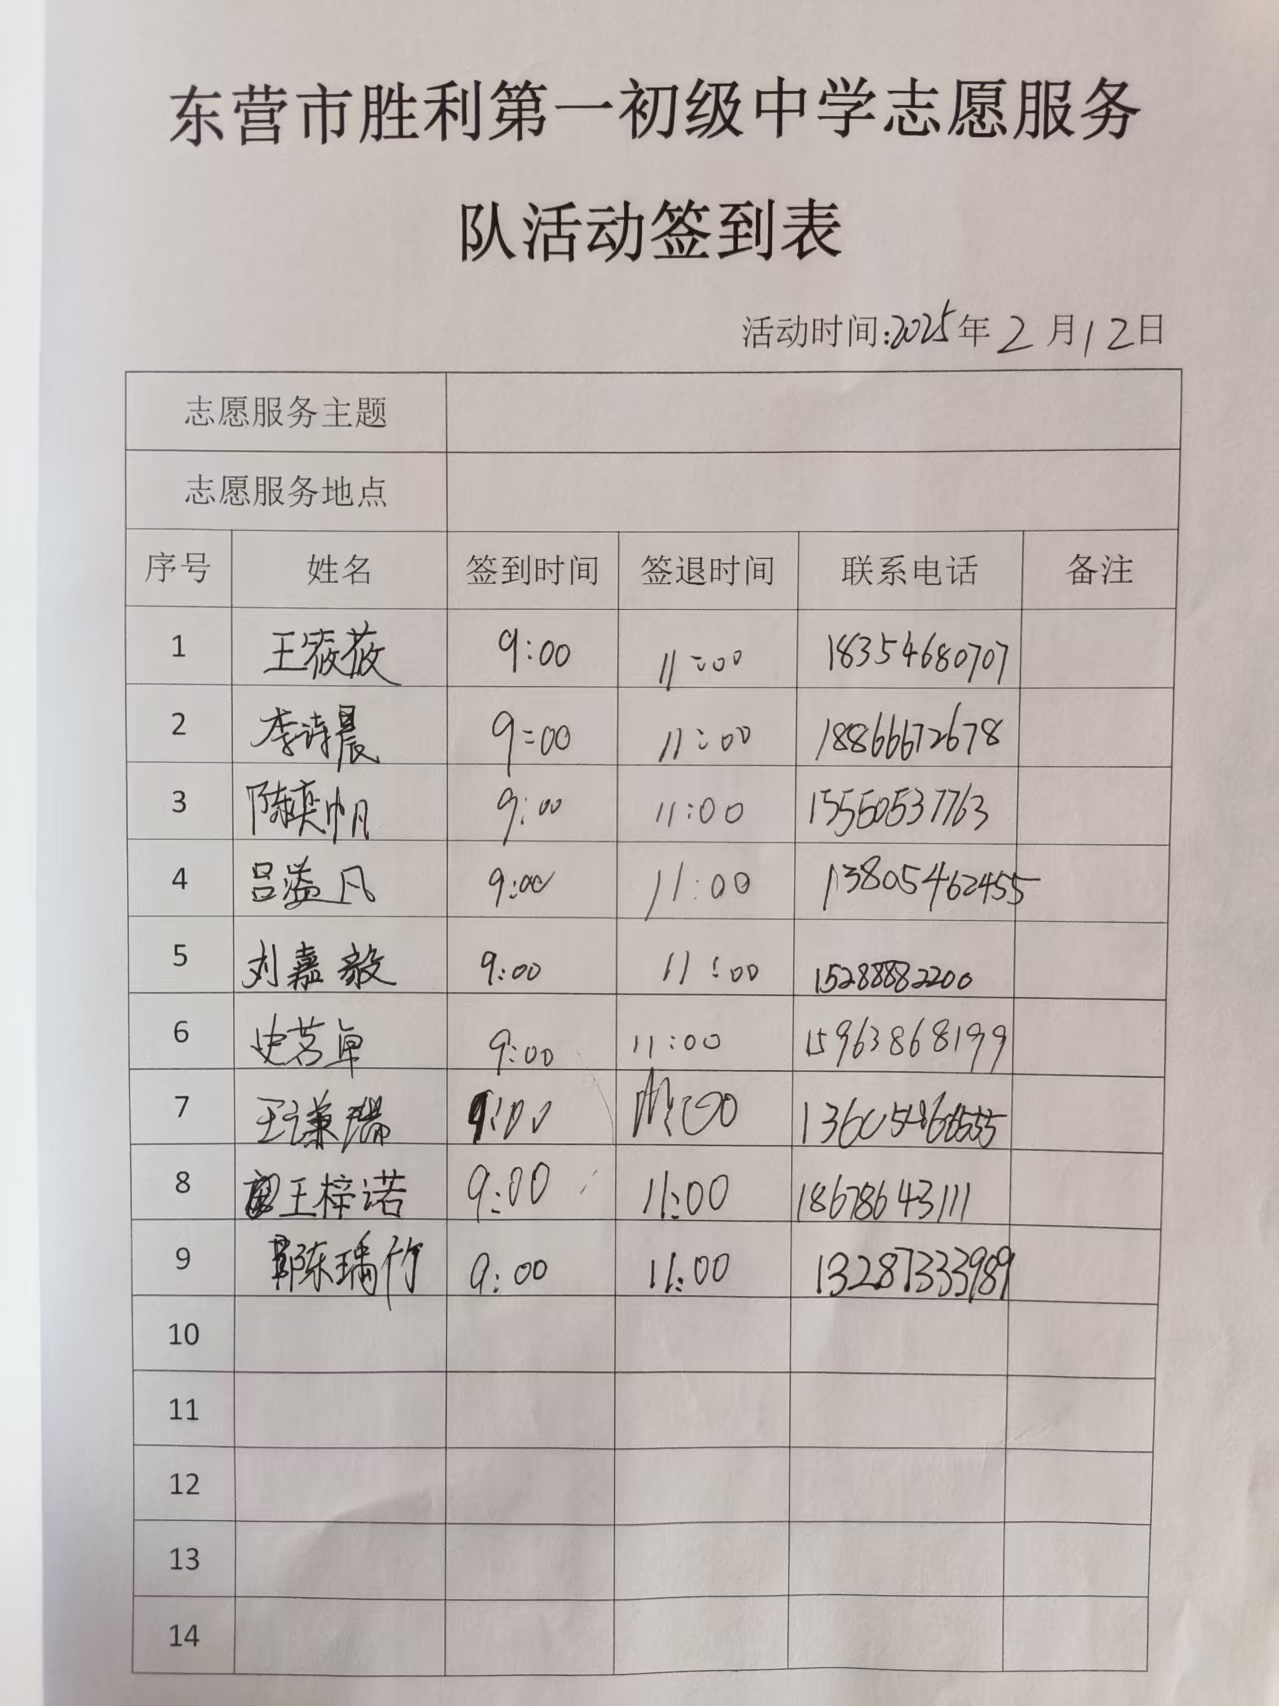 东营市胜利第一初级中学志愿服务
队活动签到表
活动时间:2025年2月12日
志愿服务主题
志愿服务地点
序号 姓名 签到时间 签退时间 联系电话 备注
1 王筱莜 9:00 11:00 18354680707
2 李诗晨 9:00 11:00 18866672678
3 陈奕帆 9:00 11:00 15550537763
4 吕溢凡 9:00 11:00 13805462455
5 刘嘉毅 9:00 11:00 15288882200
6 史茗卓 9:00 11:00 15963868199
7 王谦瑞 9:00 11:00
8 王梓诺 9:00 11:00 18678643111
9 陈瑀竹 9:00 11:00 13287333989
10
11
12
13
14